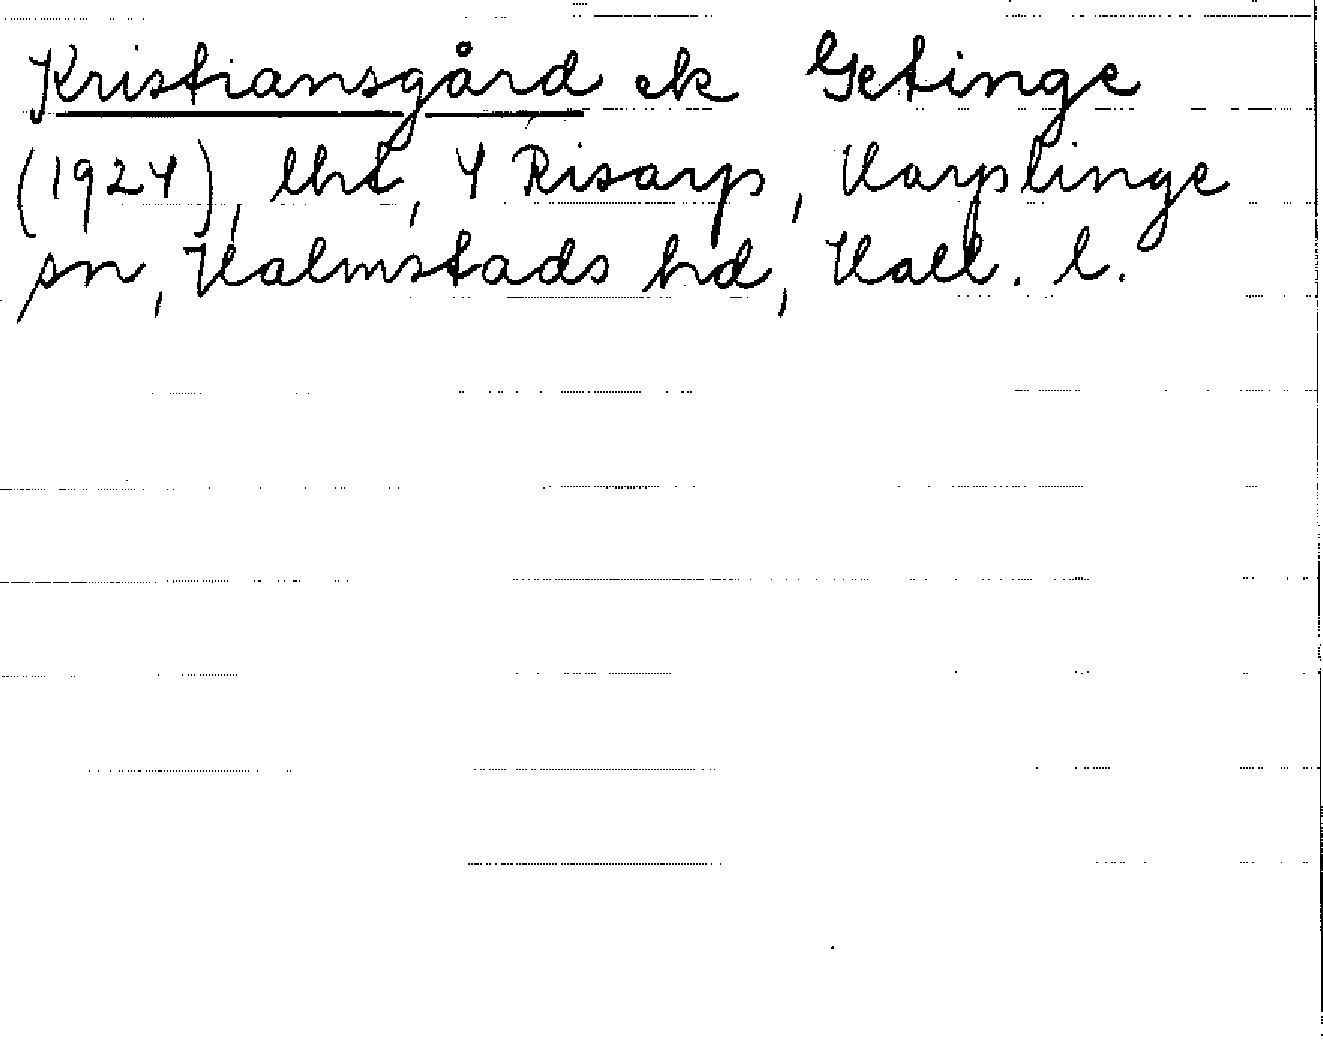 Kristiansgård ek Getinge
(1924), lht, 4 Risarp, Harplinge
sn, Halmstads hd, Hall. l.